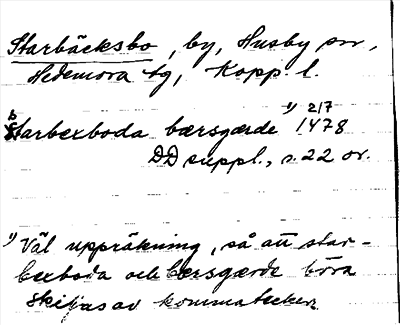 Starbäcksbo, by, Husby sn,
Hedemora tg, Kopp. l.
Starbexboda bærsgærde 1) 2/7 1478
DD suppl., s. 22 or.
1) Väl uppräkning, så att star-
bexboda och bersgærde böra
skiljas av kommatecken